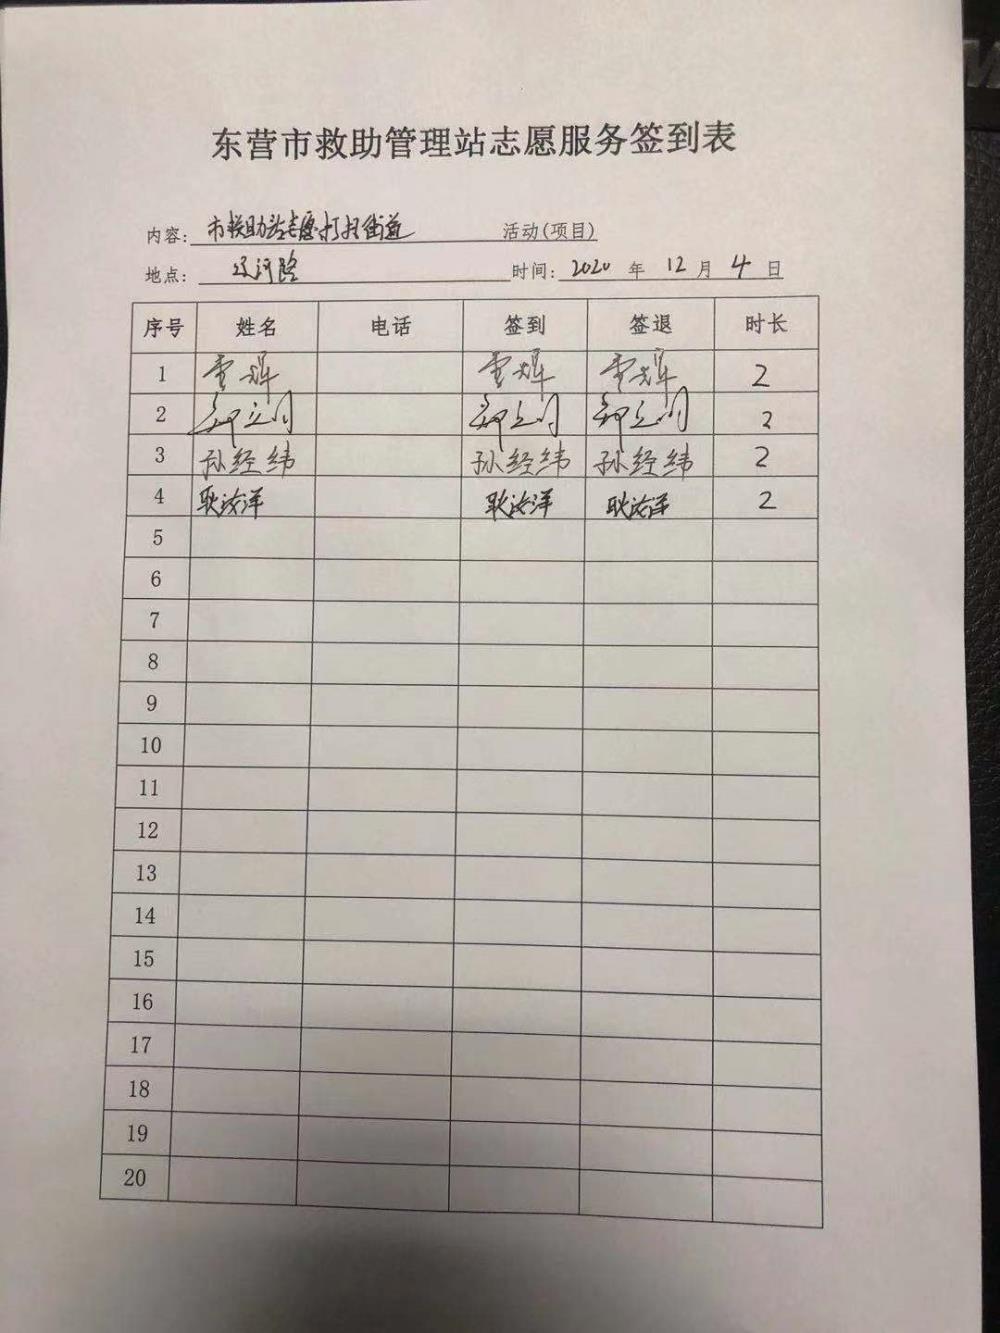 东营市救助管理站志愿服务签到表
内容: 市救助站志愿打扫街道 活动(项目)
地点: 辽河路 时间: 2020 年 12 月 4 日
序号 姓名 电话 签到 签退 时长
1 2
2 2
3 孙经纬 孙经纬 孙经纬 2
4 耿汝洋 耿汝洋 耿汝洋 2
5
6
7
8
9
10
11
12
13
14
15
16
17
18
19
20